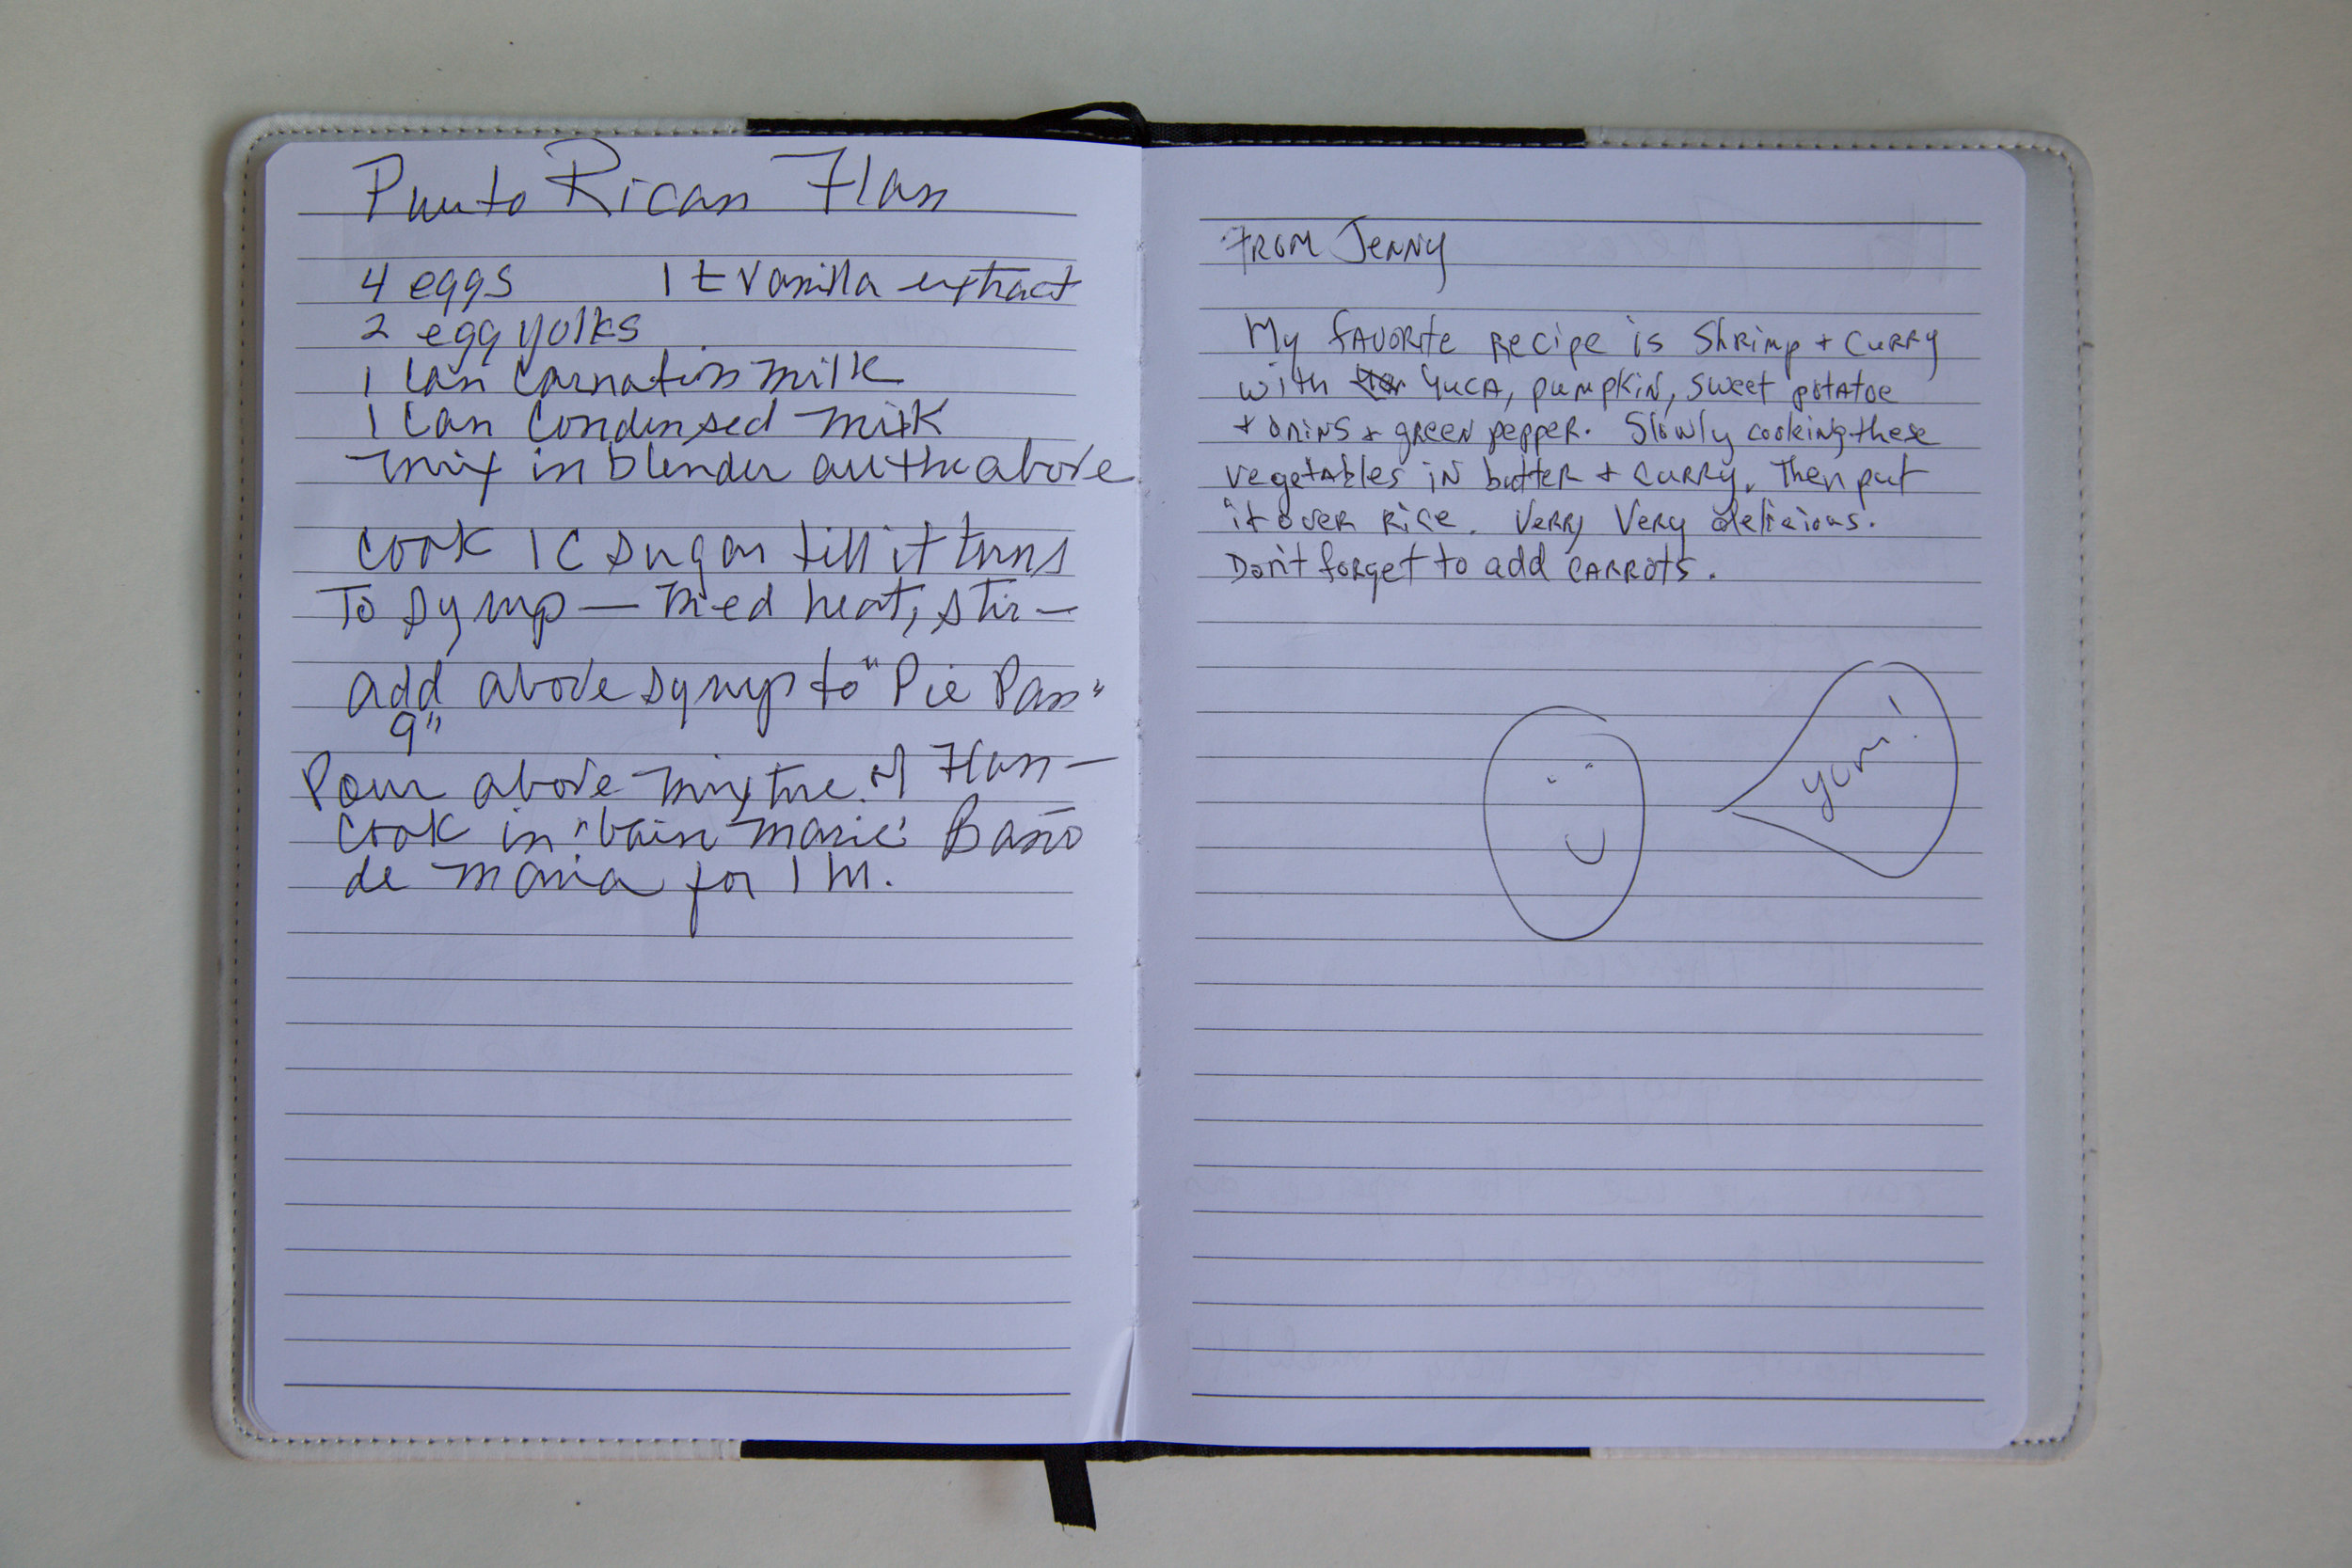 Puerto Rican Flan
4 eggs 1 t vanilla extract
2 egg yolks
1 can Carnation milk
1 can condensed milk
mix in blender all the above
cook 1 C sugar till it turns
To syrup — med heat, stir —
add above syrup to "Pie Pan"
9"
Pour above mixture of Flan —
cook in "bain marie" Baño
de maria for 1 hr.
FROM JENNY
My favorite recipe is Shrimp + curry
with yuca, pumpkin, sweet potatoe
+ onins + green pepper. Slowly cooking these
vegetables in butter + curry. Then put
it over rice. Verry Very delicious.
Don't forget to add carrots.
yum!